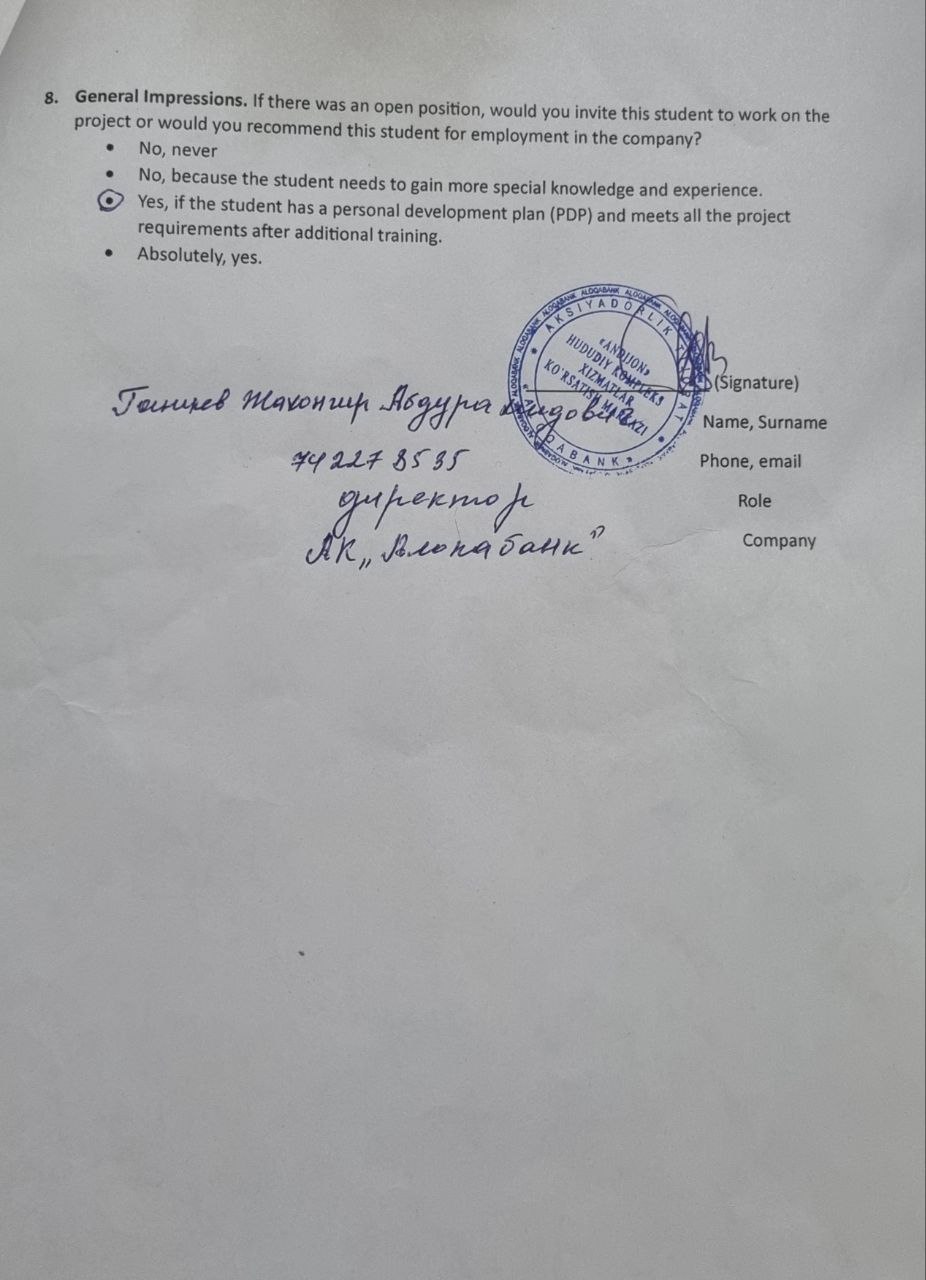 8. General Impressions. If there was an open position, would you invite this student to work on the
project or would you recommend this student for employment in the company?
• No, never
• No, because the student needs to gain more special knowledge and experience.
• Yes, if the student has a personal development plan (PDP) and meets all the project
requirements after additional training.
• Absolutely, yes.
ALOQABANK ALOQABANK ALOQABANK ALOQABANK
AKSIYADORLIK TIJORAT
«ALOQABANK»
«ANDIJON»
HUDUDIY KOMPLEKS
XIZMATLAR
KO'RSATISH MARKAZI
(Signature)
Жахонгир
Name, Surname
74 227 8535
Phone, email
директор
Role
АК „Алокабанк”
Company